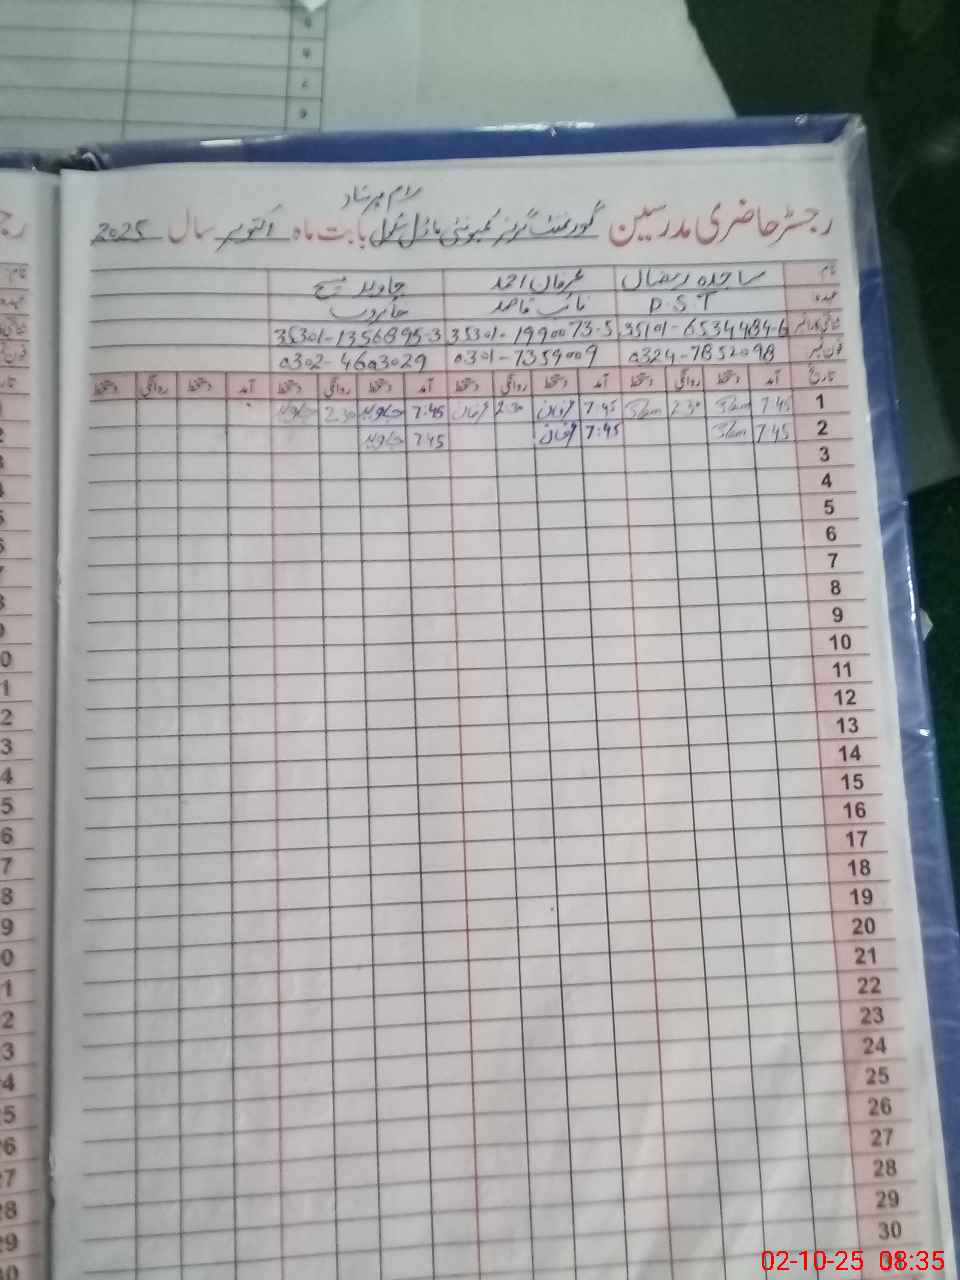 رام پرشاد
رجسٹر حاضری مدرسین گورنمنٹ گرلز کمیونٹی ماڈل سکول بابت ماہ اکتوبر سال 2025
نام ساجدہ رمضان عرفان احمد جاوید مسیح
عہدہ P.S.T نائب قاصد خاکروب
شناختی کارڈ نمبر 35101-6534484-6 35301-1990073-5 35301-1356895-3
فون نمبر 0324-7852098 0301-7359009 0302-4603029
تاریخ آمد دستخط روانگی دستخط آمد دستخط روانگی دستخط آمد دستخط روانگی دستخط آمد دستخط روانگی دستخط
1 7:45 2:30 7:45 عرفان 2:30 عرفان 7:45 جاوید 2:30 جاوید
2 7:45 7:45 عرفان 7:45 جاوید
3
4
5
6
7
8
9
10
11
12
13
14
15
16
17
18
19
20
21
22
23
24
25
26
27
28
29
30
02-10-25 08:35